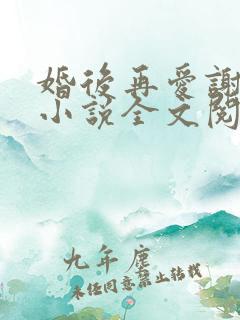 婚後再愛謝
小說全文閱
九年塵
未经同意禁止转载